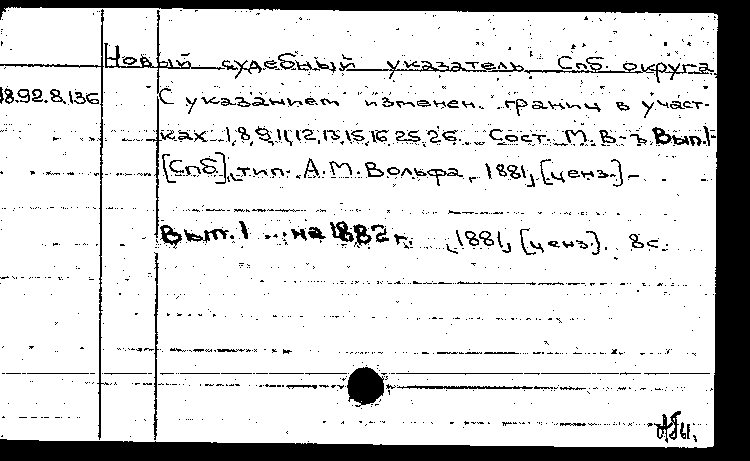 Новый судебный указатель Спб. округа
18.92.8.136
С указанием изменен. границ в участ-
ках 1,8,9,11,12,13,15,16,25,26. Сост. М. В-ъ Вып.1-
[Спб], тип. А.М. Вольфа, 1881, [ценз.] -
Вып. 1 ... на 1882 г. , 1881, [ценз]. 8 с.